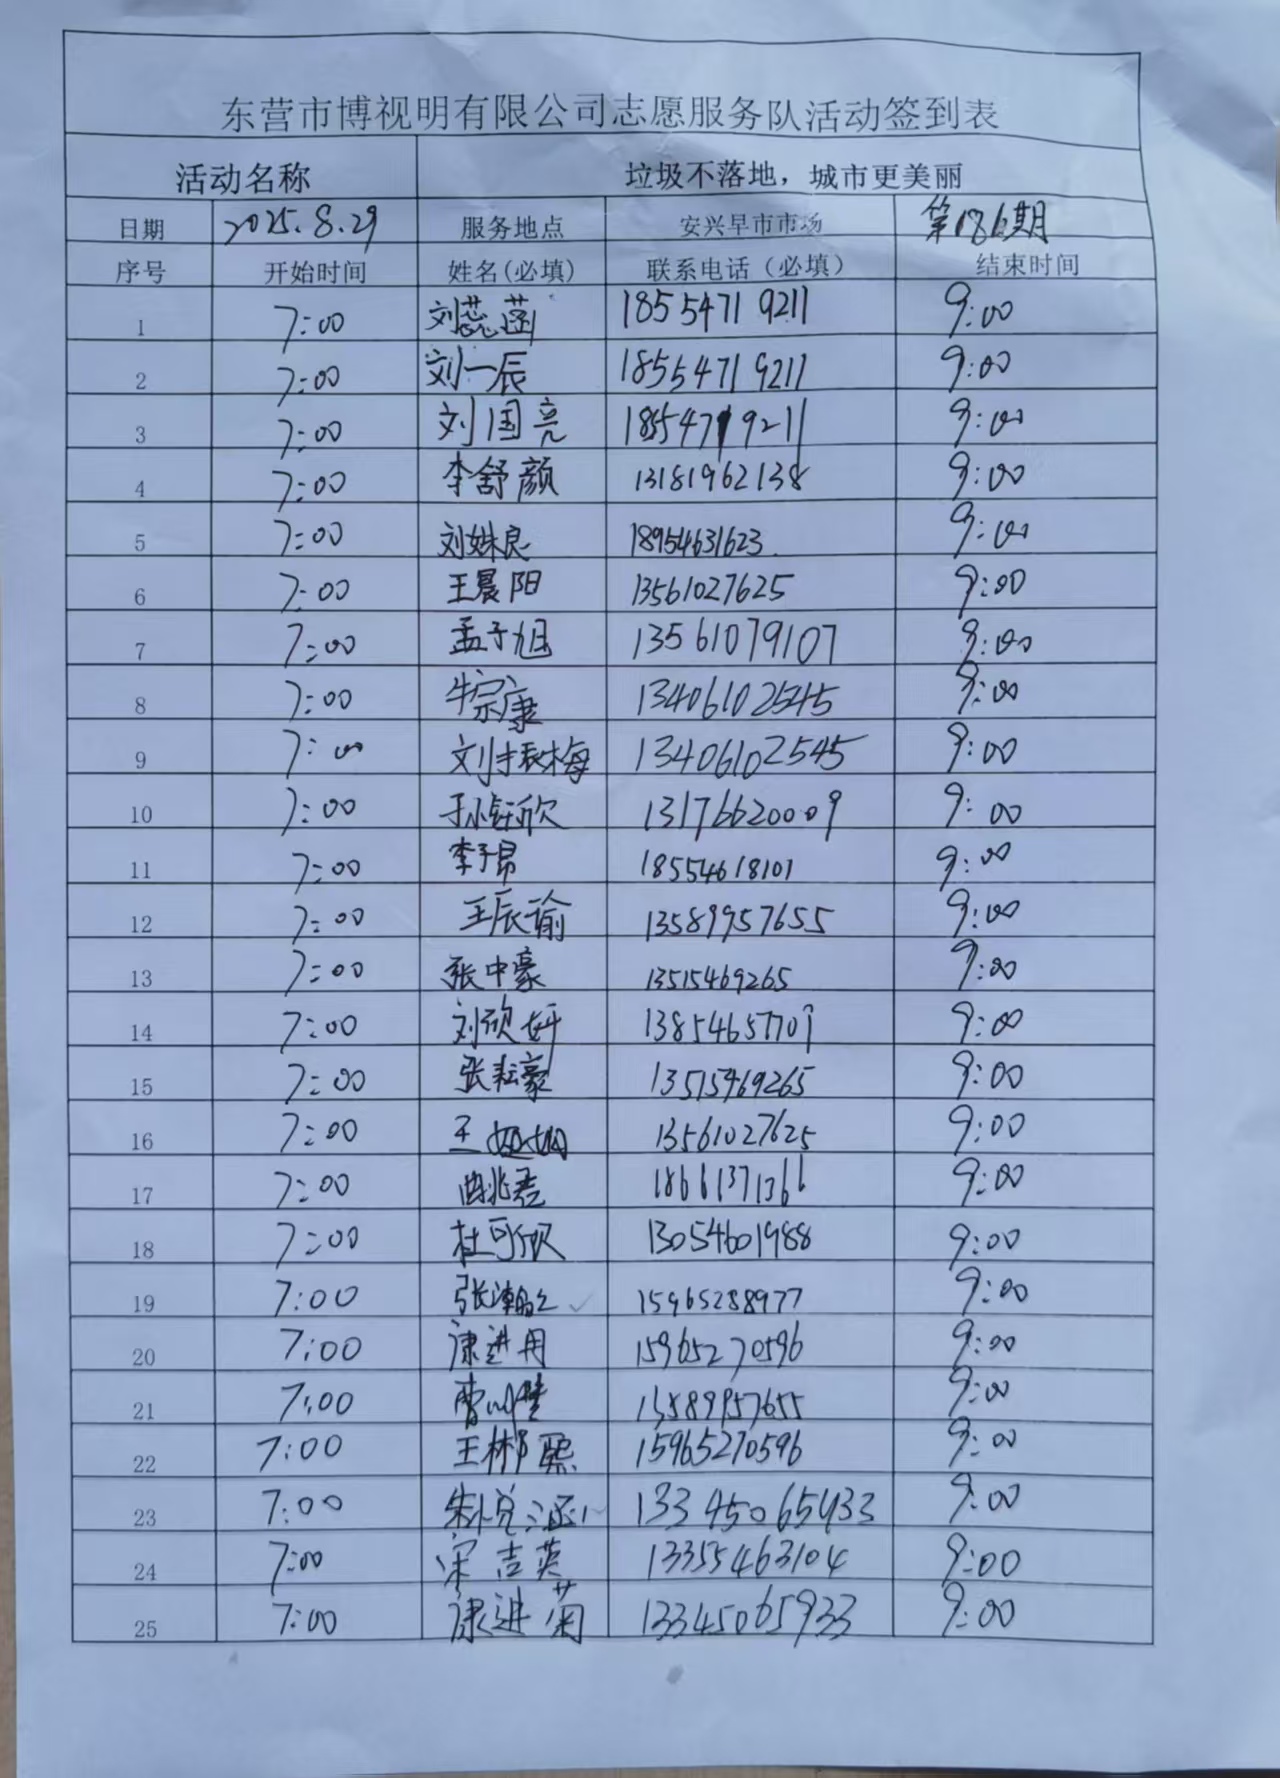 东营市博视明有限公司志愿服务队活动签到表
活动名称 垃圾不落地，城市更美丽
日期 2025.8.29 服务地点 安兴早市市场 第186期
序号 开始时间 姓名(必填) 联系电话（必填） 结束时间
1 7:00 刘蕊菡 18554719211 9:00
2 7:00 刘一辰 18554719211 9:00
3 7:00 刘国亮 18554719211 9:00
4 7:00 李舒颜 13181962138 9:00
5 7:00 刘姝良 18954631623 9:00
6 7:00 王晨阳 13561027625 9:00
7 7:00 孟子旭 13561079107 9:00
8 7:00 牛宗康 13406102545 9:00
9 7:00 刘振梅 13406102545 9:00
10 7:00 13176620009 9:00
11 7:00 李子昂 18554618101 9:00
12 7:00 王辰谕 13589957655 9:00
13 7:00 张中豪 13515469265 9:00
14 7:00 刘欣妍 13854657709 9:00
15 7:00 张耘豪 13515469265 9:00
16 7:00 王 13561027625 9:00
17 7:00 曲兆君 18661371366 9:00
18 7:00 杜可欣 13054601988 9:00
19 7:00 张瀚之 15965288977 9:00
20 7:00 康进用 15965270596 9:00
21 7:00 曹 13589957655 9:00
22 7:00 王彬 15965270596 9:00
23 7:00 朱悦涵 13345065933 9:00
24 7:00 宋吉英 13355463104 9:00
25 7:00 康进菊 13345065933 9:00